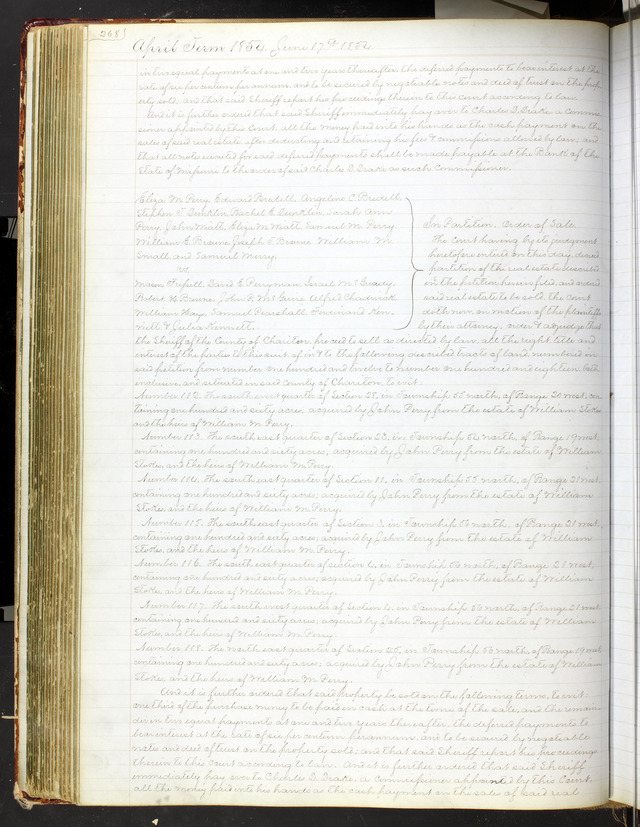 268
April Term 1854. June 17th 1854.
in two equal payments at one and two years thereafter, the deferred payments to bear interest at the
rate of six per centum per annum, and to be secured by negotiable note and deed of trust on the prop-
erty sold, and that said Sheriff report his proceedings therein to this Court according to law.
And it is further ordered that said Sheriff immediately pay over to Charles D. Drake, a Commis-
sioner appointed by this Court, all the money paid into his hands as the cash payment on the
sales of said real estate after deducting and retaining his fees & commissions allowed by law, and
that all notes executed for said deferred payments shall be made payable at the Bank of the
State of Missouri to the order of said Charles D. Drake as such Commissioner.
Eliza M. Perry, Edward Bredell, Angeline C. Bredell,
Stephen D. Dunklin, Rachel E. Dunklin, Sarah Ann
Perry, John Hiatt, Eliza M. Hiatt, Samuel M. Perry
William E. Browne, Joseph Browne, William M.
Small and Samuel Merry.
vs.
Mason Frissell, David E. Perryman, Israel McGready,
Robert H. Browne, John P. McGuire, Alfred Chadwick
William Haye, Samuel Pearshall, Ferdinand Ken-
nett & Julia Kennett.
In Partition. Order of Sale.
The Court having by its judgment
heretofore entered on this day, decreed
partition of the real estate described
in the petition herein filed, and ordered
said real estate to be sold, the court
doth now, on motion of the plaintiffs
by their attorney, order & adjudge that
the Sheriff of the County of Chariton, proceed to sell as directed by law, all the right, title and
interest of the parties to this suit, of in & to the following described tracts of land, numbered in
said petition from number one hundred and twelve to number one hundred and eighteen both
inclusive and situated in said County of Chariton, to wit:
Number 112. The south west quarter of Section 28, in Township 55 north, of Range 20 west, con-
taining one hundred and sixty acres, acquired by John Perry from the estate of William Stokes
and the heirs of William M. Perry.
Number 113. The south east quarter of Section 23, in Township 54 north, of Range 19 west,
containing one hundred and sixty acres, acquired by John Perry from the estate of William
Stokes, and the heirs of William M. Perry.
Number 114. The south east quarter of Section 11, in Township 55 north, of Range 21 west,
containing one hundred and sixty acres; acquired by John Perry from the estate of William
Stokes, and the heirs of William M. Perry.
Number 115. The south east quarter of Section 3, in Township 56 north, of Range 21 west,
containing one hundred and sixty acres; acquired by John Perry from the estate of William
Stokes, and the heirs of William M. Perry.
Number 116. The south east quarter of Section 4, in Township 56 north, of Range 21 west,
containing one hundred and sixty acres; acquired by John Perry from the estate of William
Stokes and the heirs of William M. Perry.
Number 117. The south west quarter of Section 4, in Township 56 north, of Range 21 west
containing one hundred and sixty acres; acquired by John Perry from the estate of William
Stokes, and the heirs of William M. Perry.
Number 118. The north east quarter of Section 25, in Township 53 north, of Range 19 west
containing one hundred and sixty acres; acquired by John Perry from the estate of William
Stokes and the heirs of William M. Perry.
And it is further ordered that said property be sold on the following terms, to wit:
one third of the purchase money to be paid in cash at the time of the sale, and the remain-
der in two equal payments at one and two years thereafter, the deferred payments to
bear interest at the rate of six per centum per annum, and to be secured by negotiable
note and deed of trust on the property sold; and that said Sheriff report his proceedings
therein to this Court according to law. And it is further ordered that said Sheriff
immediately pay over to Charles D. Drake, a commissioner appointed by this Court,
all the money paid into his hands as the cash payment on the sales of said real